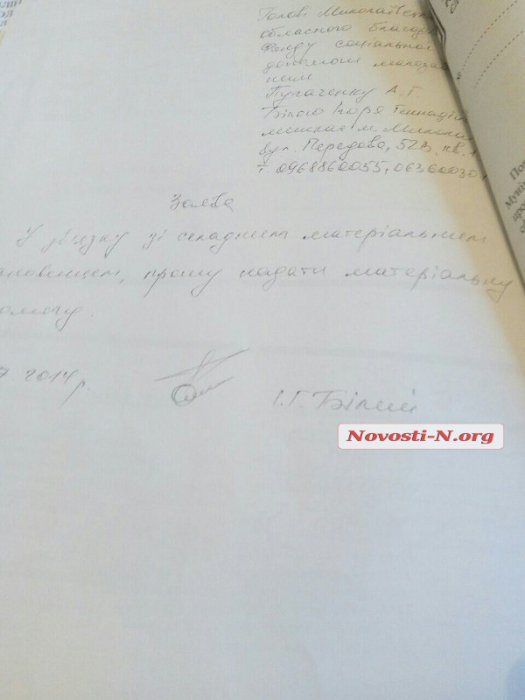 Голові Миколаївськ
обласного благод
Фонду соціальної
допомоги малоза
ним
Пугаченку А.Г
Білого Ігоря Геннадій
мешкає м. Микола
вул. Передова, 52
т 0968860055, 06360030
Заява
У зв'язку зі складним матеріальним
ановищем, прошу надати матеріальну
омогу.
2014р.
І.Г. Білий
Novosti-N.org